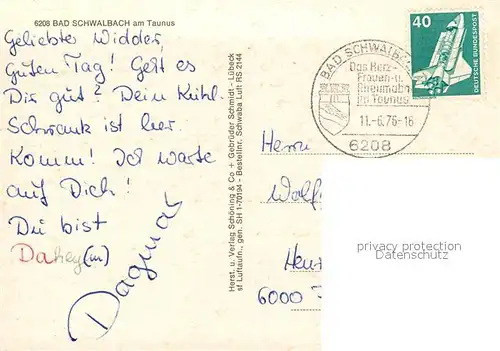 6208 BAD SCHWALBACH am Taunus
Geliebter Widder,
Guten Tag! Geht es
Dir gut? Dein Kühl-
Schrank ist leer.
Komm! Ich warte
auf Dich!
Du bist
Dahey(m)
Dagmar
Herst. u. Verlag Schöning & Co + Gebrüder Schmidt - Lübeck
sf Luftaufn., gen. SH 1-70194 - Bestellnr. Schwaba Luft RS 2144
BAD SCHWALBACH
Das Herz-
Frauen-u.
Rheumabad
im Taunus
11.-6.76-16
6208
40
DEUTSCHE BUNDESPOST
Herrn
6000
privacy protection
Datenschutz